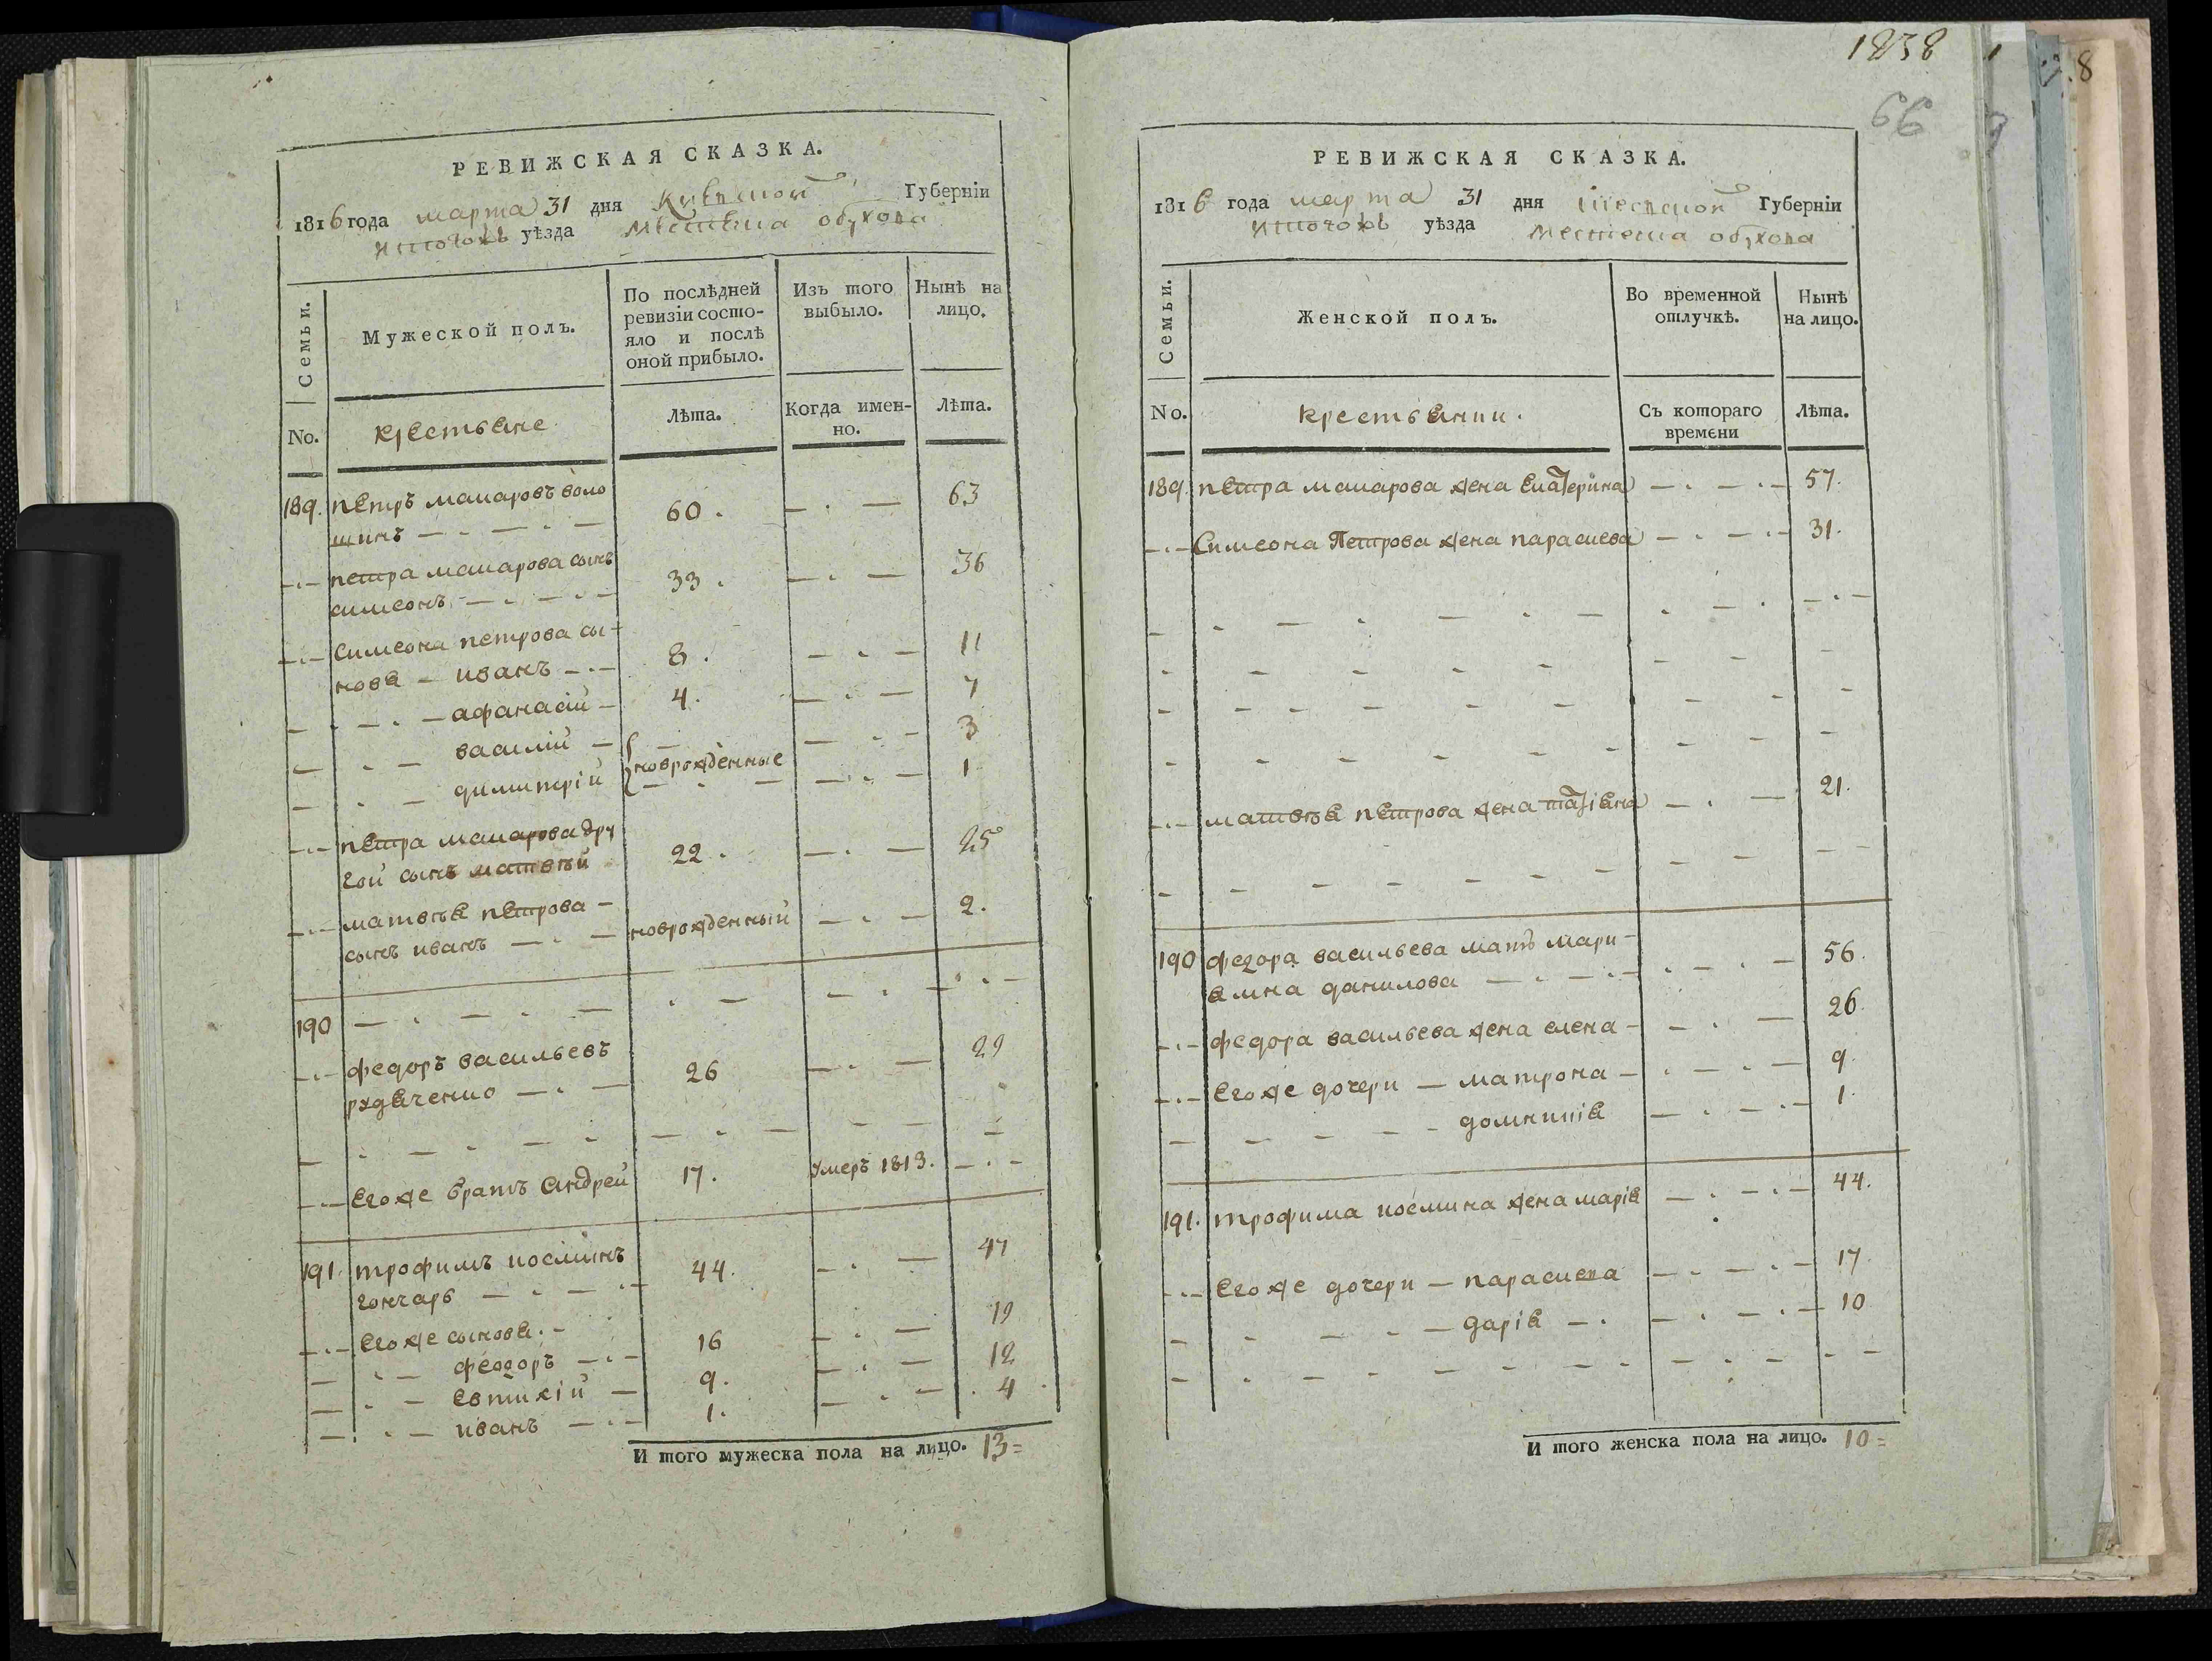 РЕВИЖСКАЯ СКАЗКА.
1816 года марта 31 дня Кіевской Губерніи
уѣзда Местечка обухова
Семьи.
Мужеской полъ.
По послѣдней ревизіи состо-
яло и послѣ
оной прибыло.
Изъ того
выбыло.
Нынѣ на
лицо.
No.
крестьяне
Лѣта.
Когда имен-
но.
Лѣта.
189. петръ макаровъ воло
шинъ 60. 63
петра макарова сынъ
симеонъ 33. 36
Симеона петрова сы-
новя иванъ 8. 11
афанасій 4. 7
василій 3
новрожденные
димитрій 1
петра макарова дру
гой сынъ матвѣй 22. 25
матвѣя петрова
сынъ иванъ новрожденный 2.
190
федоръ васильевъ
рудѧченко 26 29
Егоже братъ андрей 17. умеръ 1813.
191. трофимъ косминъ
гончаръ 44. 47
Егоже сыновя.
феодоръ 16 19
Евтихій 9. 12
иванъ 1. 4
И того мужеска пола на лицо. 13=
1838
66
РЕВИЖСКАЯ СКАЗКА.
1816 года марта 31 дня Кіевской Губерніи
уѣзда Местечка обухова
Семьи.
Женской полъ.
Во временной
отлучкѣ.
Нынѣ
на лицо.
No.
крестьянки.
Съ котораго
времени
Лѣта.
189. петра макарова жена Екатерина 57.
Симеона Петрова жена параскева 31.
матвѣя петрова жена татіяна 21.
190 федора васильева мать мари-
ямна данилова 56.
федора васильева жена елена 26.
Егоже дочери матрона 9.
домникія 1.
191. трофима космина жена марія 44.
Егоже дочери параскева 17.
дарія 10
И того женска пола на лицо. 10=